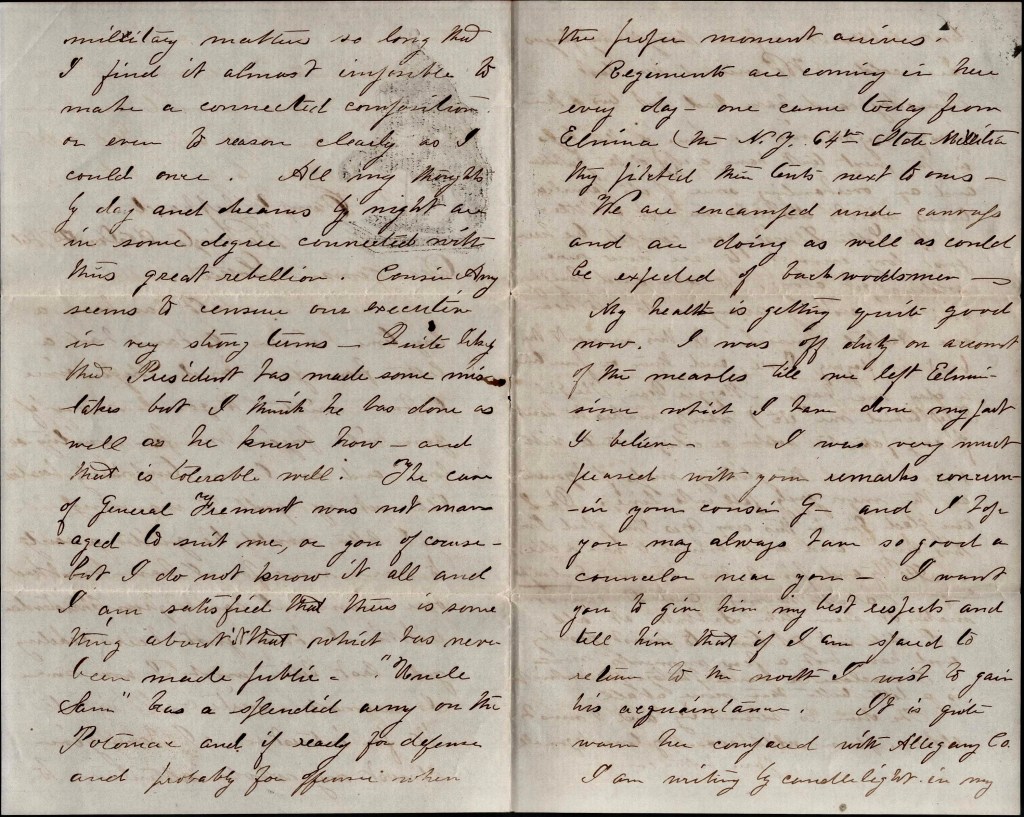 military matters so long that
I find it almost impossible to
make a connected composition
or even to reason clearly as I
could once. All my thoughts
by day and dreams by night are
in some degree connected with
this great rebellion. Cousin Amy
seems to censure our executive
in very strong terms — Quite likely
that President has made some mis-
takes but I think he has done as
well as he knew how — and
that is tolerable well. The case
of General Fremont was not man
-aged to suit me, or you of course -
but I do not know it all and
I am satisfied that there is some
thing about it that which has never
been made public - "Uncle
Sam" has a splendid army on the
Potomac and if ready for defense
and probably for offensive when
the proper moment arrives.
Regiments are coming in here
every day - one came today from
Elmira (the N.Y. 64th State Militia
they pitched their tents next to ours —
We are encamped under canvass
and are doing as well as could
be expected of backwoodsmen —
My health is getting quite good
now. I was off duty on account
of the measles till we left Elmi-
since which I have done my part
I believe - I was very much
pleased with your remarks concern-
-in your cousin G— and I hope
you may always have so good a
counselor near you — I want
you to give him my best respects and
tell him that if I am spared to
return to the north I wish to gain
his acquaintance. It is quite
warm here compared with Allegany Co.
I am writing by candlelight in my